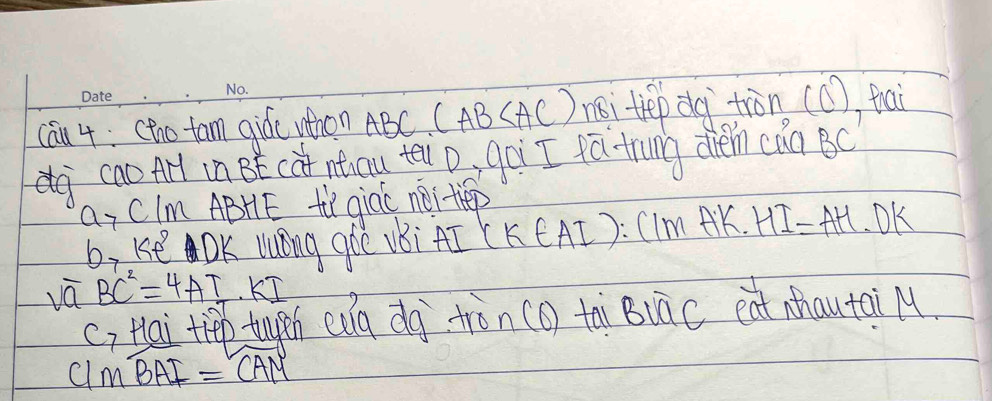 Date . . No.
Câu 4: Cho tam giác nhọn ABC. (AB<AC) nội tiếp đg tròn (O), hai
đg cao AH và BE cắt nhau tại D, gọi I là trung điểm của BC
a, C/m ABHE tứ giác nội tiếp
b, Kẻ DK vuông góc với AI (K∈AI): C/m AK.HI=AH.DK
và BC²=4AI.KI
c, Hai tiếp tuyến của đg tròn (O) tại B và C cắt nhau tại M.
C/m \widehat{BAI} = \widehat{CAM}